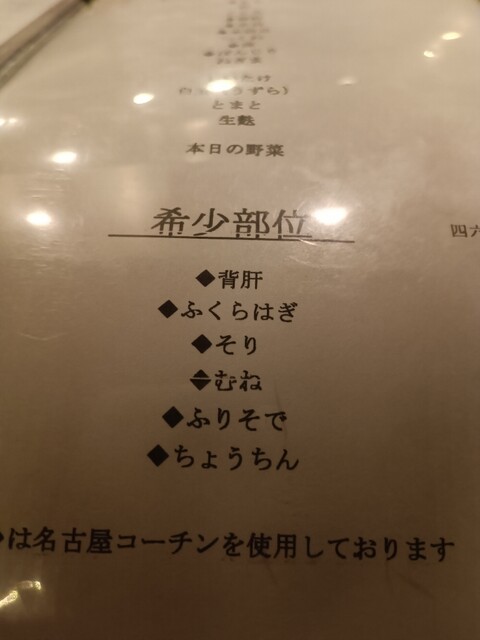 とまと
生麩
本日の野菜
希少部位
四六
◆背肝
◆ふくらはぎ
◆そり
◆むね
◆ふりそで
◆ちょうちん
は名古屋コーチンを使用しております